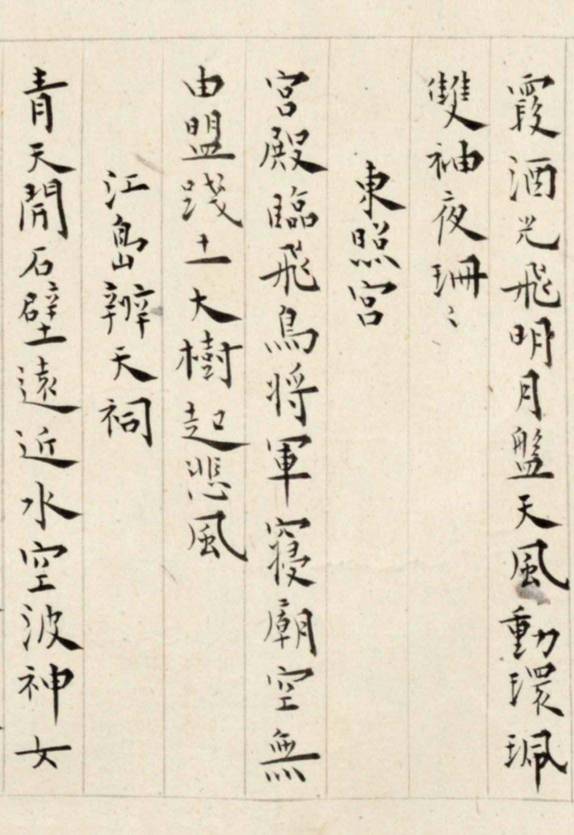 霞酒光飛明月盤天風動環珮
雙袖夜珊〻
東照宮
宮殿臨飛鳥将軍寢廟空無
由盟踐土大樹起悲風
江島辨天祠
青天開石壁遠近水空波神女